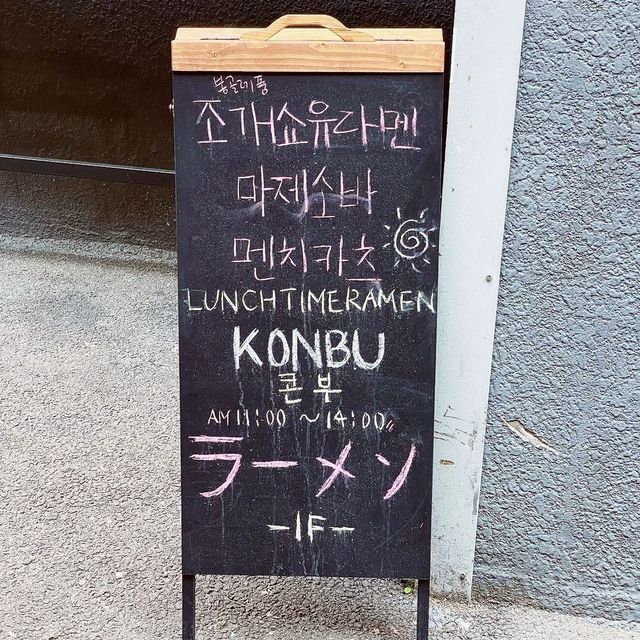 봉골레풍
조개쇼유라멘
마제소바
멘치카츠
LUNCHTIMERAMEN
KONBU
콘부
AM 11:00 ~ 14:00
ラーメン
-1F-